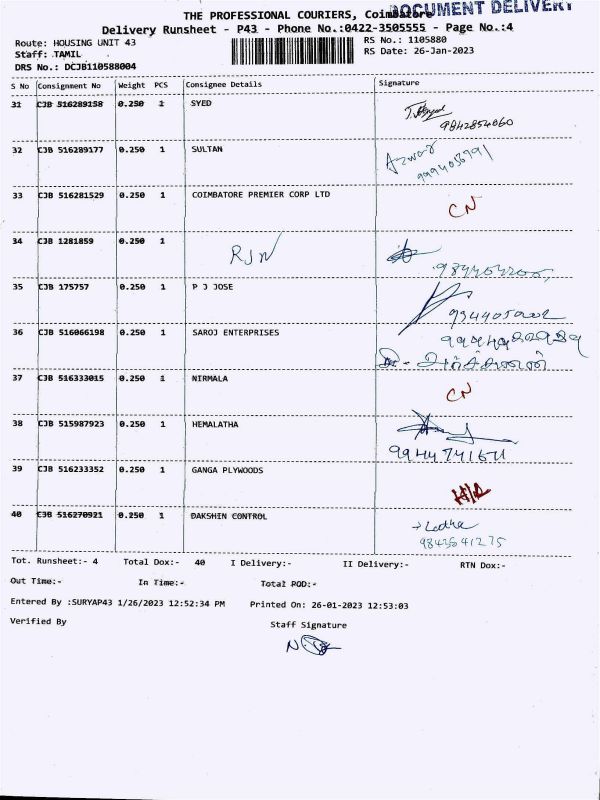 DOCUMENT DELIVERY
THE PROFESSIONAL COURIERS, Coimbatore
Delivery Runsheet - P43 - Phone No.:0422-3505555 - Page No.:4
Route: HOUSING UNIT 43
RS No.: 1105880
Staff: TAMIL
RS Date: 26-Jan-2023
DRS No.: DCJB110588004
S No Consignment No Weight PCS Consignee Details Signature
31 CJB 516289158 0.250 1 SYED
9842854060
32 CJB 516289177 0.250 1 SULTAN
33 CJB 516281529 0.250 1 COIMBATORE PREMIER CORP LTD CN
34 CJB 1281859 0.250 1 RJN
35 CJB 175757 0.250 1 P J JOSE
36 CJB 516066198 0.250 1 SAROJ ENTERPRISES
37 CJB 516333015 0.250 1 NIRMALA CN
38 CJB 515987923 0.250 1 HEMALATHA
39 CJB 516233352 0.250 1 GANGA PLYWOODS
40 CJB 516270921 0.250 1 DAKSHIN CONTROL
Tot. Runsheet:- 4 Total Dox:- 40 I Delivery:- II Delivery:- RTN Dox:-
Out Time:- In Time:- Total POD:-
Entered By :SURYAP43 1/26/2023 12:52:34 PM Printed On: 26-01-2023 12:53:03
Verified By
Staff Signature